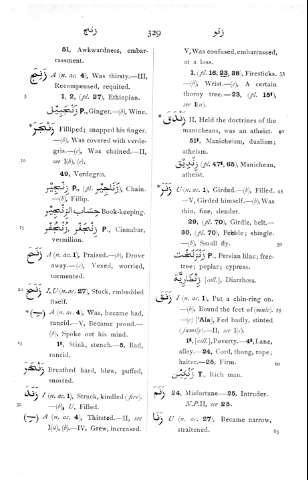 زنج 329 زنو
51, Awkwardness, embar-
rassment.
زَنِجَ A (n. ac. 4), Was thirsty.—III,
Recompensed, requited.
1, 2, (27), Ethiopian.
زَنْجَبِيْل P., Ginger.—(b), Wine.
زَنْجَرَ Filliped; snapped his finger.
—(b), Was covered with verde-
gris.—(c), Was chained.—II,
see I(b), (c).
49, Verdegris.
P., (pl. زَنَاجِيْر), Chain.
—(b), Fillip.
Book-keeping.
P., Cinnabar,
vermilion.
A (n. ac. 1), Praised.—(b), Drove
away.—(c), Vexed, worried,
tormented.
I, U (n. ac. 27), Stuck, embedded
itself.
A (n. ac. 4), Was, became bad,
rancid.—V, Became proud.—
(b), Spoke out his mind.
1t, Stink, stench.—5, Bad,
rancid.
Breathed hard, blew, puffed,
snorted.
زَنَدَ I (n. ac. 1), Struck, kindled (fire).
—(b), U, Filled.
A (n. ac. 4), Thirsted.—II, see
I(a), (b).—IV, Grew, increased.
V, Was confused, embarrassed,
at a loss.
1, (pl. 16, 23, 38), Firesticks.
—(b), Wrist.—(c), A certain
thorny tree.—23, (pl. 15t),
see I(a).
زَنْدَقَ II, Held the doctrines of the
manicheans, was an atheist.
51t, Manicheism, dualism;
atheism.
زِنْدِيْق (pl. 47t, 65), Manichean,
atheist.
زَنَرَ U (n. ac. 1), Girded.—(b), Filled.
—V, Girded himself.—(b) Was
thin, fine, slender.
29, (pl. 70), Girdle, belt.—
30, (pl. 70), Pebble; shingle.
—(b), Small fly.
P., Persian lilac; free-
tree; poplar; cypress.
[coll.], Diarrhœa.
زَنَقَ I (n. ac. 1), Put a chin-ring on.
—(b), Bound the feet of (mule).
—(c) ['Ala], Fed badly, stinted
(family).—II, see I(c).
1t, [coll.], Poverty.—4t, Lane,
alley.—24, Cord, thong, rope;
halter.—25, Firm.
T., Rich man.
زنم 24, Misfortune—25, Intruder.
N.P.II, see 25.
زَنَا U (n. ac. 27), Became narrow,
straitened.